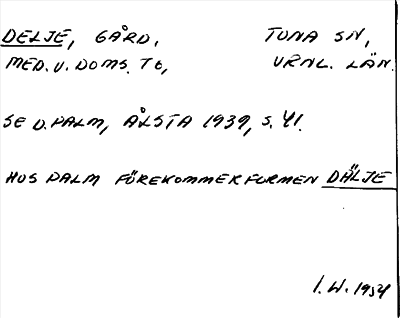 DELJE, GÅRD, TUNA SN,
MED. U. DOMS. TG, VRNL. LÄN.
SE D. PALM, ÅLSTA 1939, S. 41.
HOS PALM FÖREKOMMER FORMEN DÄLJE
I. W. 1954